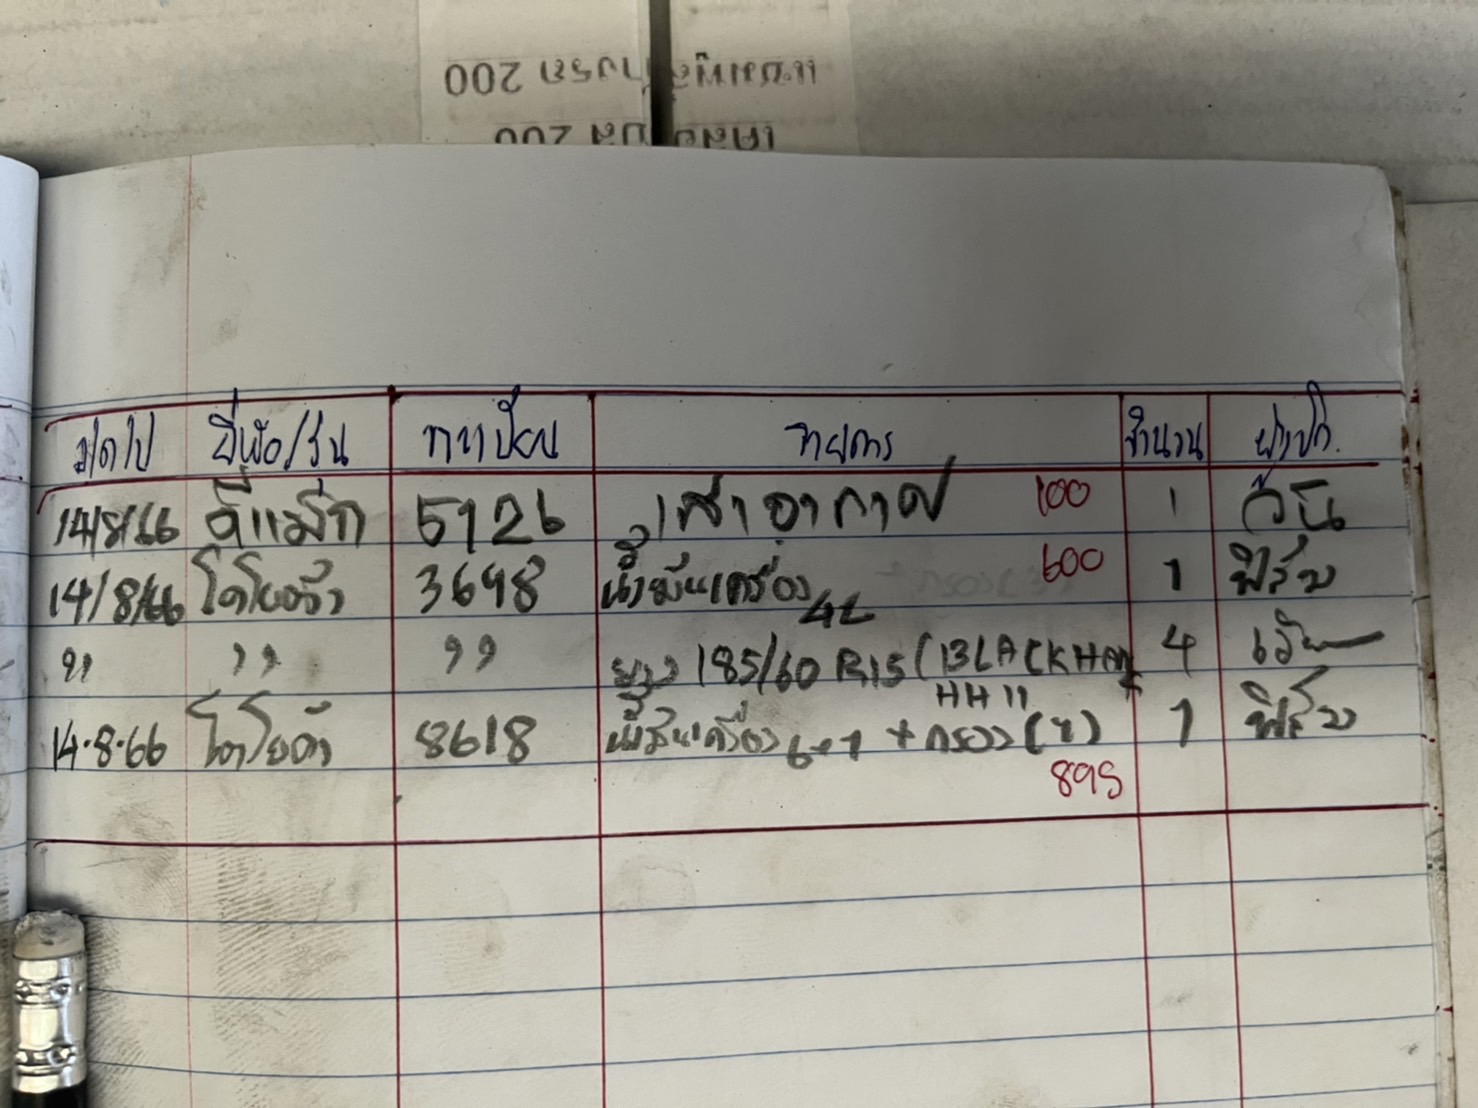 200
200
ว/ด/ป ยี่ห้อ/รุ่น ทะเบียน รายการ จำนวน
14/8/66 ดีแม็ก 5126 เสาอากาศ 100 1
14/8/66 โตโยต้า 3698 น้ำมันเครื่อง 4L 600 1 ฟิล์ม
" " " ยาง 185/60 R15 (BLACKHAWK 4
HH11
14.8.66 โตโยต้า 8618 น้ำมันเครื่อง 6+1 + กรอง 1 ฟิล์ม
895